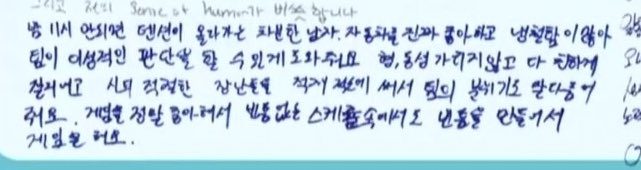 그리고 저의 Sense of humor가 비슷합니다
밤 11시 안되면 텐션이 올라가는 차분한 남자. 자동차를 진짜 좋아하고 냉철함이 많아
팀이 이성적인 판단을 할 수 있게 도와줘요 형, 동생 가리지않고 다 친하게
잘지내고 시의 적절한 장난들을 적재 적소에 써서 팀의 분위기도 만들어
줘요. 게임을 정말 좋아해서 빈틈없는 스케줄속에서도 빈틈을 만들어서
게임을 해요.